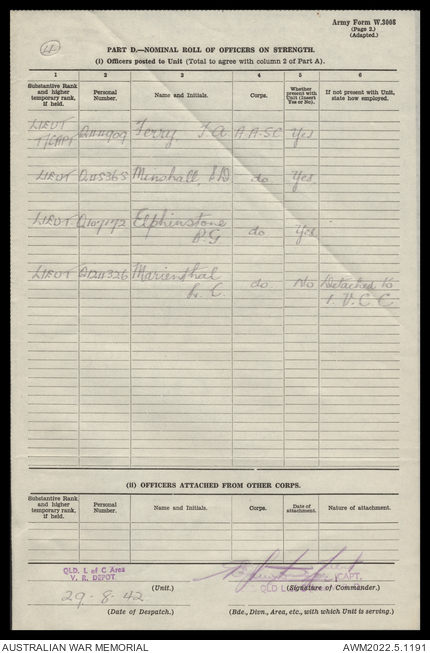 Army Form W.3008
(Page 2.)
(Adapted.)
PART D.—NOMINAL ROLL OF OFFICERS ON STRENGTH.
(i) Officers posted to Unit (Total to agree with column 2 of Part A).
1 2 3 4 5 6
Substantive Rank and higher temporary rank, if held. Personal Number. Name and Initials. Corps. Whether present with Unit (Insert Yes or No). If not present with Unit, state how employed.
LIEUT
T/CAPT Q144909 Terry A.A.S.C Yes
LIEUT Minshall, do Yes
LIEUT Elphinstone
R.G do Yes
LIEUT Marienthal
L. C. do No Detached to
1. V. C. C
(ii) OFFICERS ATTACHED FROM OTHER CORPS.
Substantive Rank and higher temporary rank, if held. Personal Number. Name and Initials. Corps. Date of attachment. Nature of attachment.
QLD. L of C Area
V. R. DEPOT.
(Unit.)
CAPT.
(Signature of Commander.)
29-8-42
(Date of Despatch.)
(Bde., Divn., Area, etc., with which Unit is serving.)
AUSTRALIAN WAR MEMORIAL AWM2022.5.1191